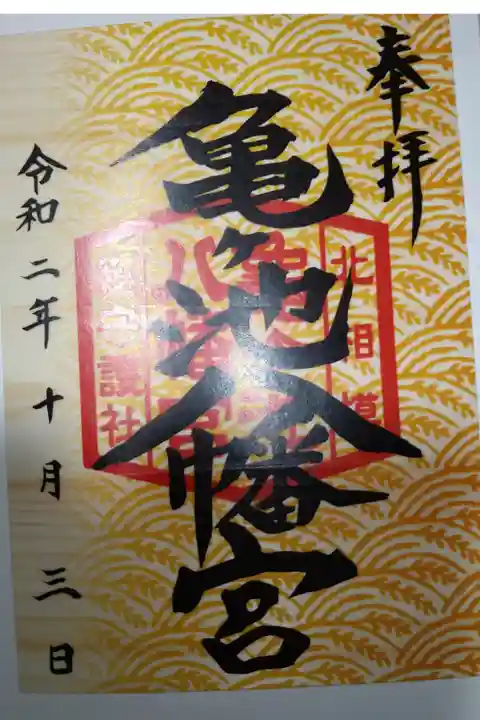 奉拝
亀ヶ池八幡宮
令和二年十月三日
北相模
護社